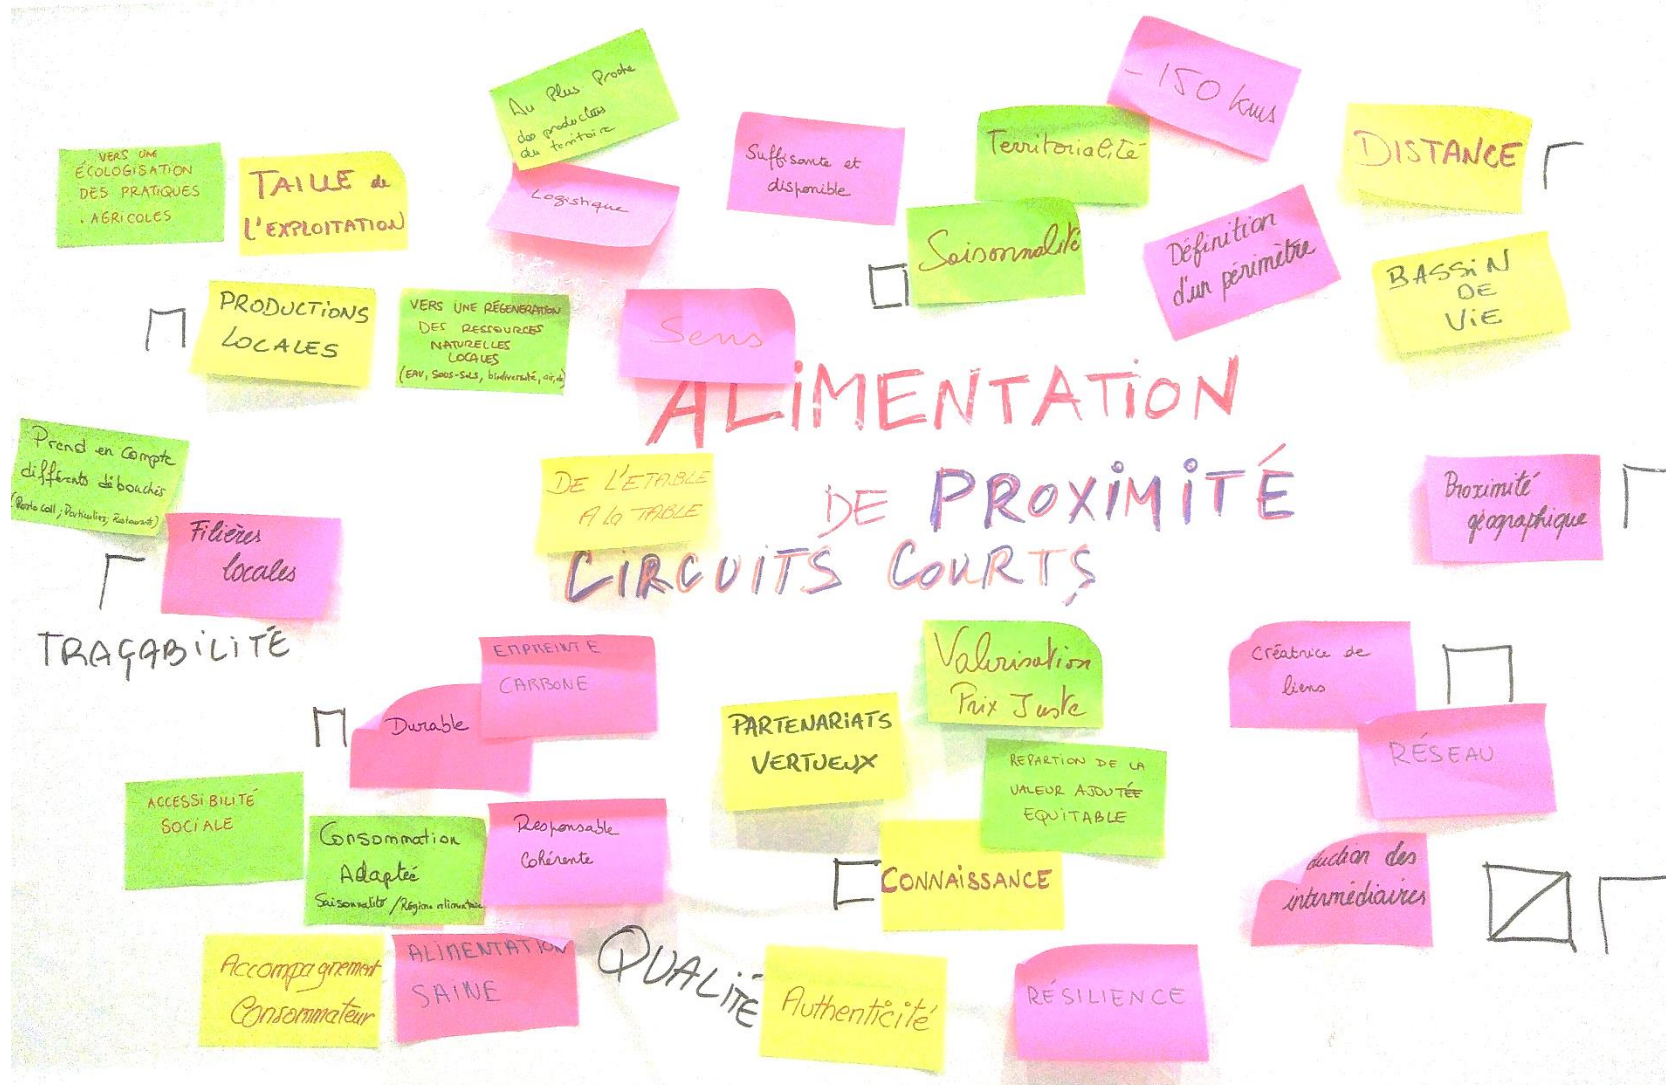 Au Plus Proche
des producteurs
du territoire
- 150 kms
VERS UNE
ÉCOLOGISATION
DES PRATIQUES
AGRICOLES
TAILLE de
L'EXPLOITATION
Logistique
Suffisante et
disponible
Territorialité
DISTANCE
Saisonnalité
Définition
d'un périmètre
BASSIN
DE
VIE
PRODUCTIONS
LOCALES
VERS UNE RÉGENERATION
DES RESSOURCES
NATURELLES
LOCALES
(EAU, SOUS-SOLS, biodiversité, air,
Sens
ALIMENTATION
DE PROXIMITÉ
CIRCUITS COURTS
Prend en compte
différents débouchés
(Resto coll ; Particuliers ; Restaurants)
Filières
locales
DE L'ETABLE
A la TABLE
Proximité
géographique
TRAÇABILITÉ
EMPREINTE
CARBONE
Durable
Valorisation
Prix Juste
PARTENARIATS
VERTUEUX
Créatrice de
liens
RÉSEAU
REPARTION DE LA
VALEUR AJOUTÉE
EQUITABLE
ACCESSIBILITÉ
SOCIALE
Consommation
Adaptée
Saisonnalité / Régime alimentaire
Responsable
Cohérente
CONNAISSANCE
duction des
intermédiaires
Accompagnement
Consommateur
ALIMENTATION
SAINE
QUALITÉ
Authenticité
RÉSILIENCE